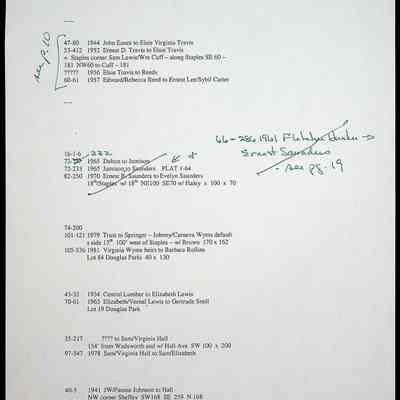 ----
see p. 10
47-80 1944 John Eanes to Elsie Virginia Travis
53-412 1952 Ernest D. Travis to Elsie Travis
= Staples corner Sam Lewis/Wm Cuff - along Staples SE 60 -
181 NW60 to Cuff - 181
????? 1956 Elsie Travis to Reeds
60-61 1957 Edward/Rebecca Reed to Ernest Lee/Sybil Carter
----
66-286 1961 Fletcher to
Ernest Saunders
- see pg. 19
16-1-6 222
72- 1965 Dalton to Jamison
72-233 1965 Jamison to Saunders PLAT 1-64
82-250 1970 Ernest B. Saunders to Evelyn Saunders
18th/Staples w/ 18th NE100 SE70 w/ Haley x 100 x 70
74-200
101-121 1979 Trust to Springer - Johnny/Carneva Wyens default
s side 15th 100' west of Staples - w/ Brown 170 x 162
105-536 1981 Virginia Wyens heirs to Barbara Rollins
Lot 84 Douglas Parks 40 x 130
43-32 1934 Central Lumber to Elizabeth Lewis
70-61 1963 Elizabeth/Vernal Lewis to Gertrude Snell
Lot 19 Douglas Park
35-217 ???? to Sam/Virginia Hall
154' from Wadsworth and w/ Hall Ave SW 100 x 200
97-547 1978 Sam/Virginia Hall to Sam/Elizabeth
40-5 1941 JW/Fannie Johnson to Hall
NW corner Sheffey SW168 SE 259 N 168